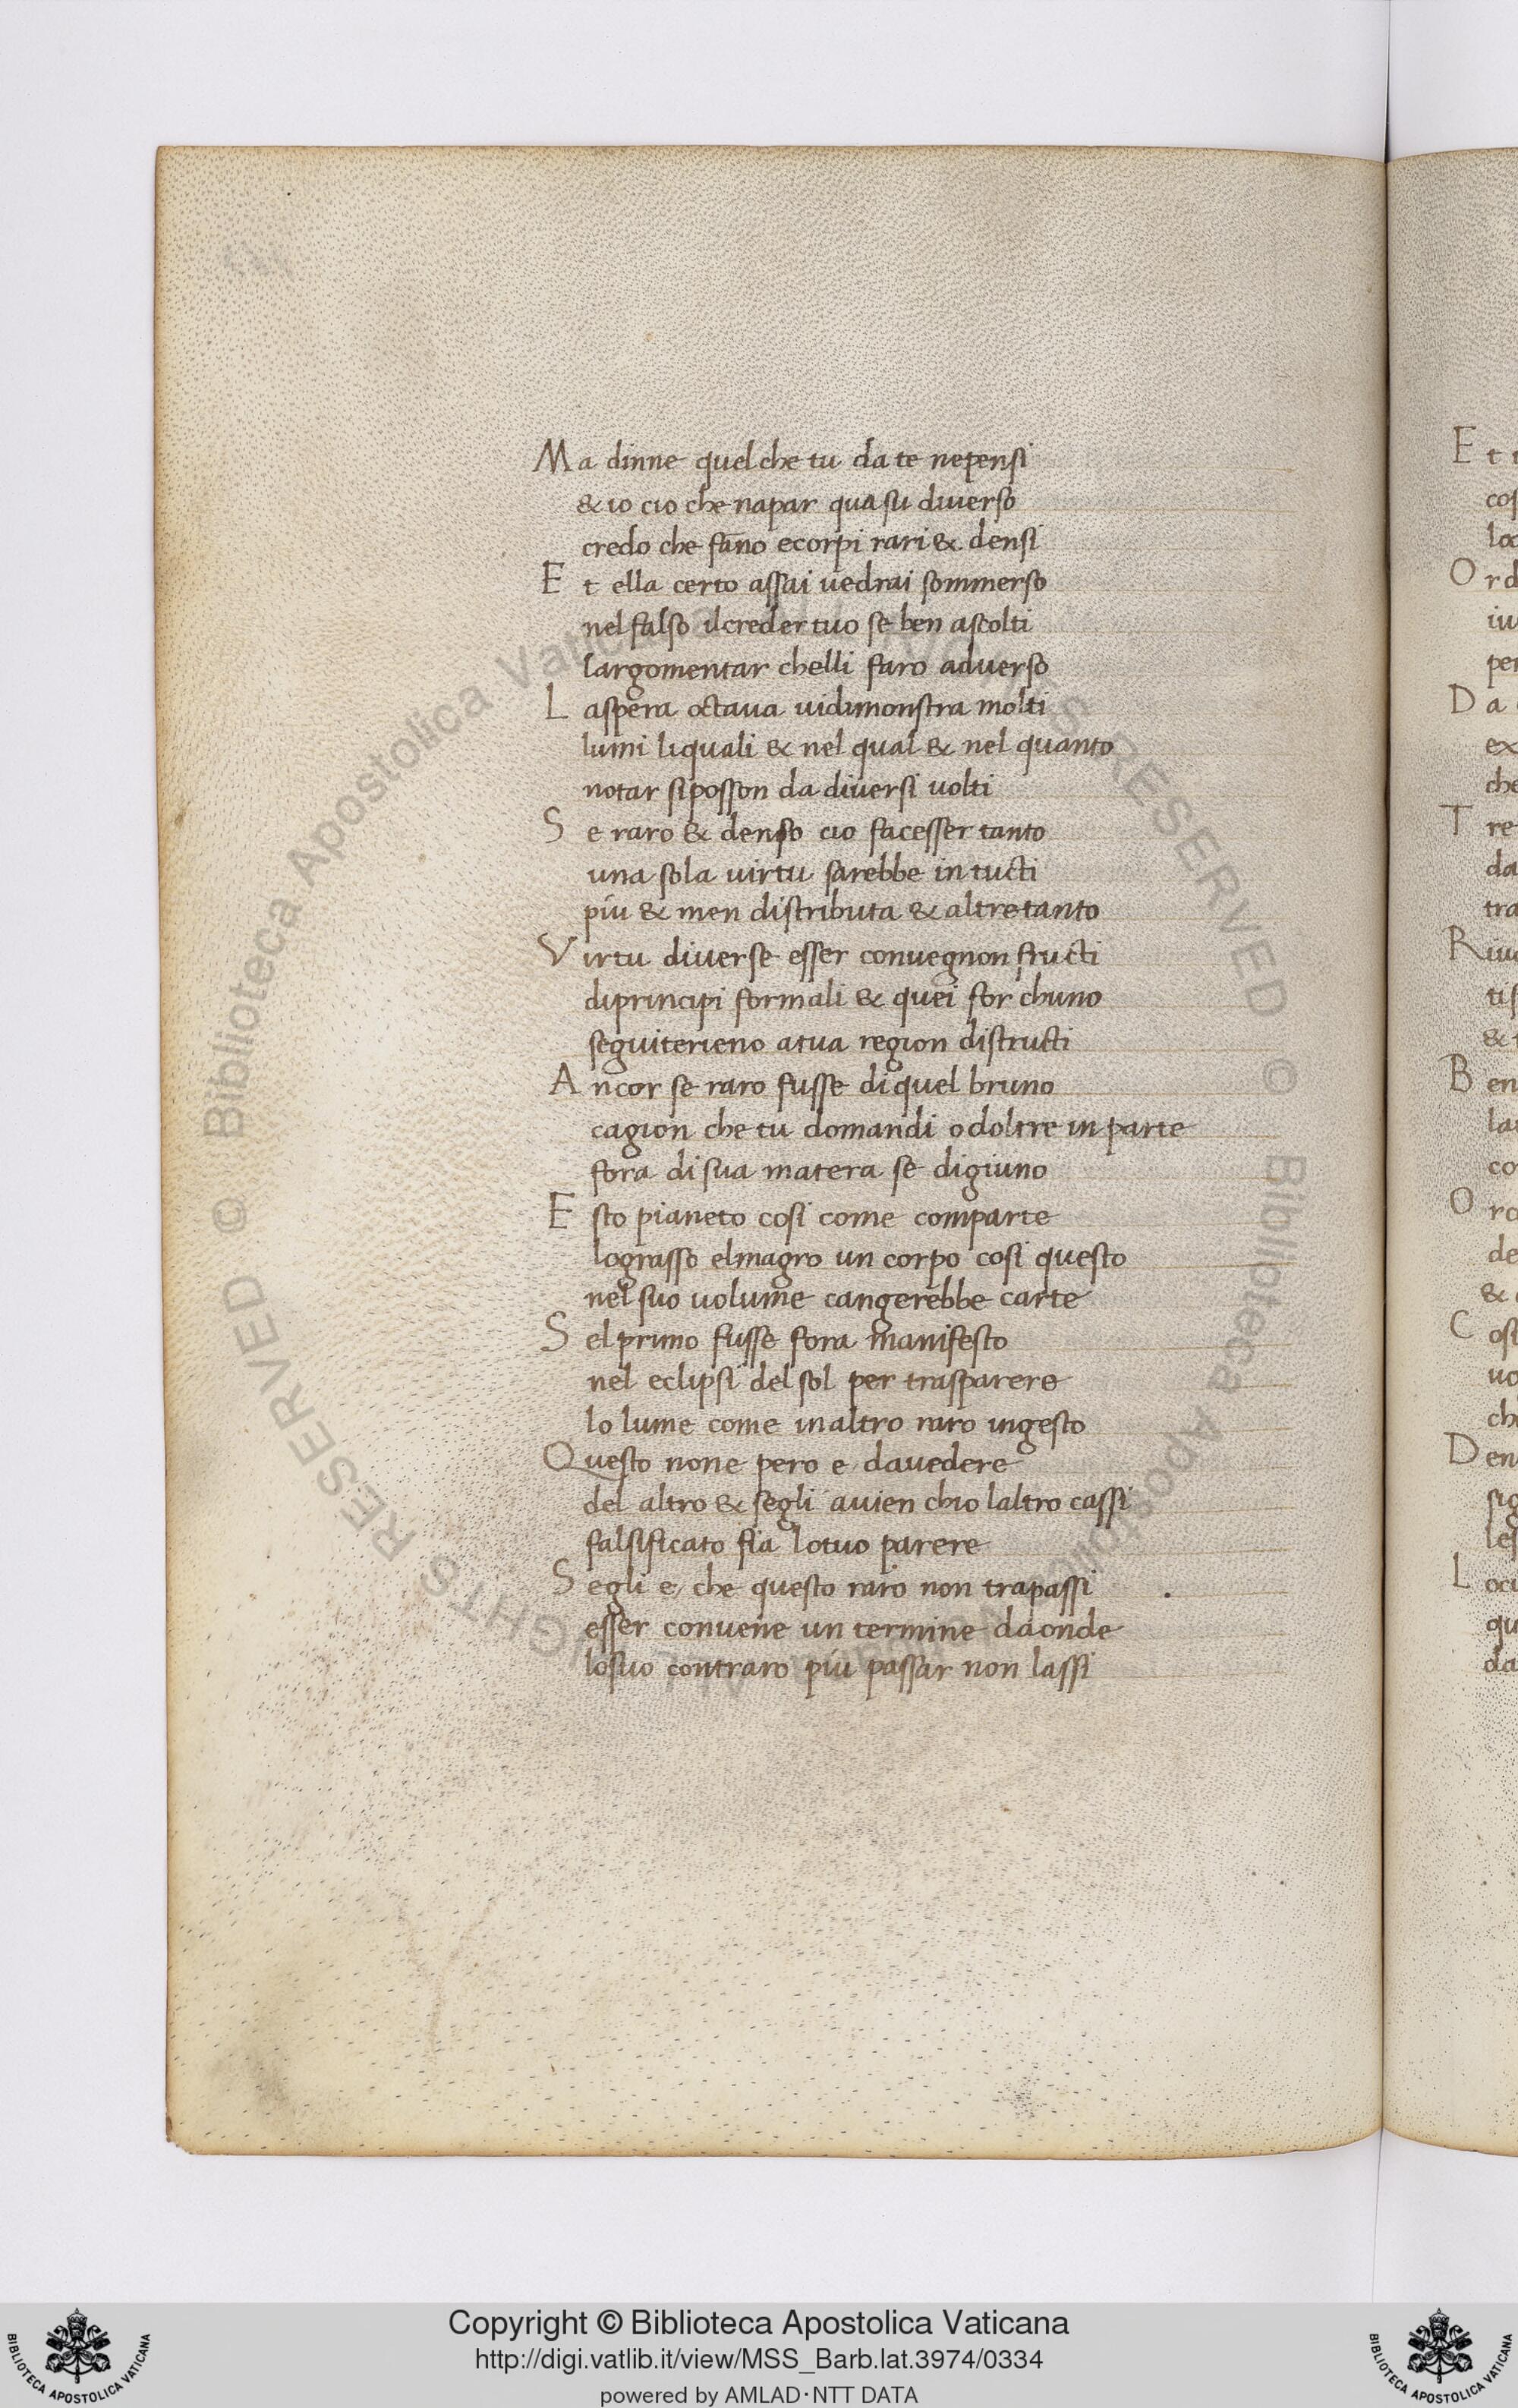 Ma dinne quel che tu da te nepensi
& io cio che napar qua su diuerso
credo che fāno ecorpi rari & densi
Et ella certo assai uedrai sommerso
nel falso il creder tuo se ben ascolti
largomentar chelli faro aduerso
Laspera octaua uidimonstra molti
lumi liquali & nel qual & nel quanto
notar siposson da diuersi uolti
Se raro & denso cio facesser tanto
una sola uirtu sarebbe in tucti
piu & men distributa & altretanto
Virtu diuerse esser conuegnon fructi
diprincipi formali & quei for chuno
seguiterieno atua region distructi
Ancor se raro fusse di quel bruno
cagion che tu domandi o doltre in parte
fora di sua matera se digiuno
Esto pianeto cosi come comparte
lograsso elmagro un corpo cosi questo
nel suo uolume cangerebbe carte
Sel primo fusse fora manifesto
nel eclipsi del sol per trasparere
lo lume come inaltro raro ingesto
Questo none pero e dauedere
del altro & segli auien chio laltro cassi
falsificato fia lotuo parere
Segli e che questo raro non trapassi
esser conuene un termine daonde
losuo contraro piu passar non lassi
E t
cos
O rd
iu
per
D a
ex
che
T re
da
tra
R iu
tis
&
B en
co
O r
de
&
C os
uo
ch
D en
sig
les
L oc
qu
da
© Biblioteca Apostolica Vaticana ALL RIGHTS RESERVED © Biblioteca Apostolica Vaticana ALL RIGHTS RESERVED
BIBLIOTECA APOSTOLICA VATICANA
Copyright © Biblioteca Apostolica Vaticana
http://digi.vatlib.it/view/MSS_Barb.lat.3974/0334
powered by AMLAD·NTT DATA
BIBLIOTECA APOSTOLICA VATICANA